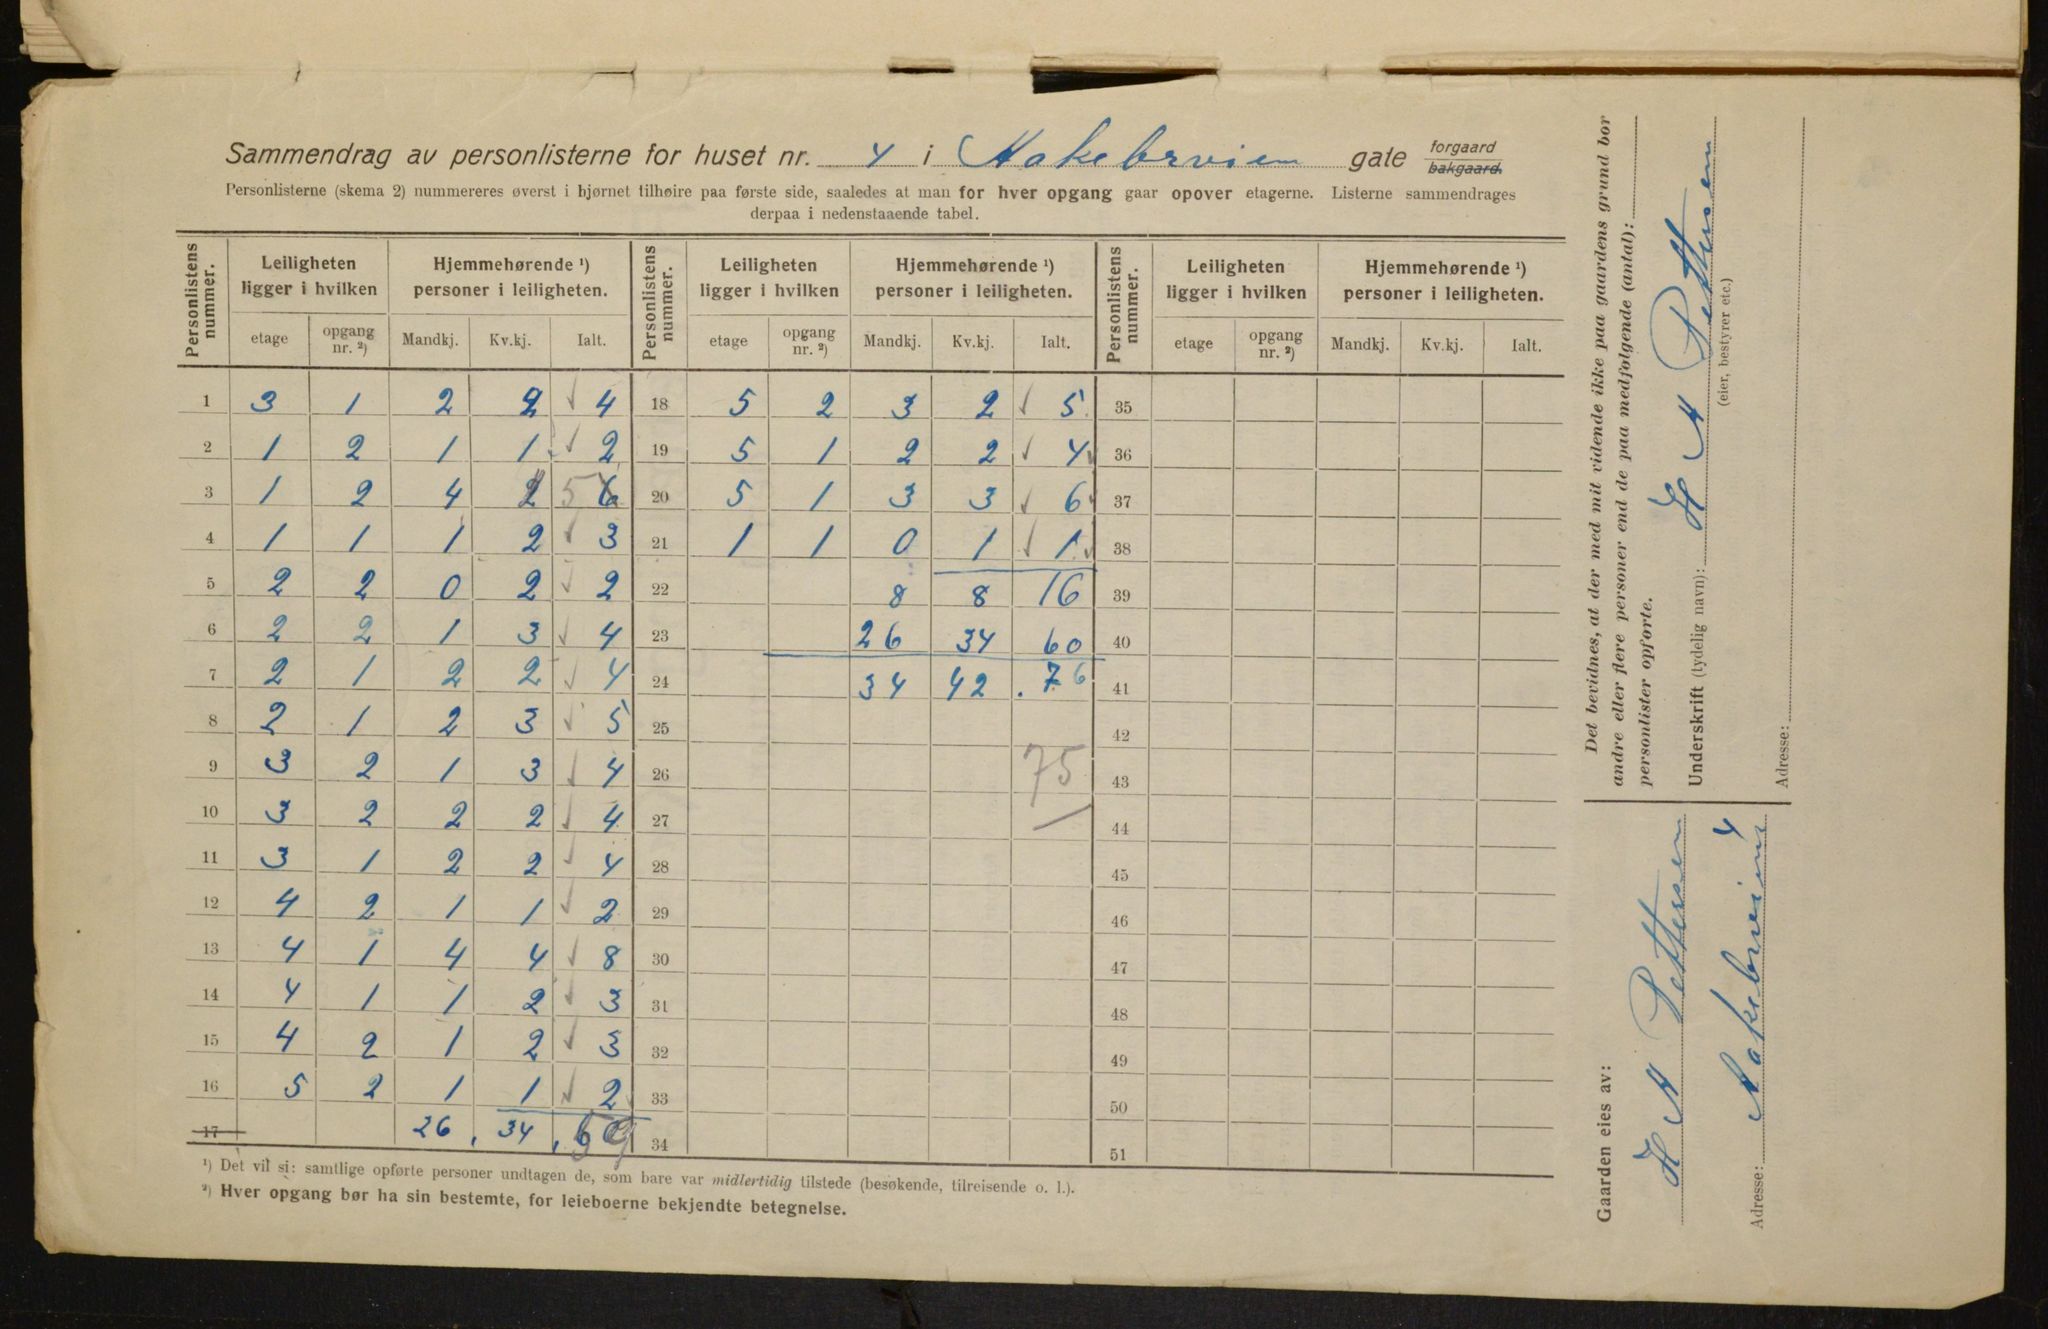 Sammendrag av personlisterne for huset nr. 4 i Aakebrveien gate forgaard bakgaard.
Personlisterne (skema 2) nummereres øverst i hjørnet tilhøire paa første side, saaledes at man for hver opgang gaar opover etagerne. Listerne sammendrages
derpaa i nedenstaaende tabel.
Personlistens nummer. Leiligheten ligger i hvilken Hjemmehørende ¹) personer i leiligheten. Personlistens nummer. Leiligheten ligger i hvilken Hjemmehørende ¹) personer i leiligheten. Personlistens nummer. Leiligheten ligger i hvilken Hjemmehørende ¹) personer i leiligheten.
etage opgang nr. ²) Mandkj. Kv.kj. Ialt. etage opgang nr. ²) Mandkj. Kv.kj. Ialt. etage opgang nr. ²) Mandkj. Kv.kj. Ialt.
1 3 1 2 2 4 18 5 2 3 2 5 35
2 1 2 1 1 2 19 5 1 2 2 4 36
3 1 2 4 5 6 20 5 1 3 3 6 37
4 1 1 1 2 3 21 1 1 0 1 1 38
5 2 2 0 2 2 22 8 8 16 39
6 2 2 1 3 4 23 26 34 60 40
7 2 1 2 2 4 24 34 42 . 76 41
8 2 1 2 3 5 25 42
9 3 2 1 3 4 26 75 43
10 3 2 2 2 4 27 44
11 3 1 2 2 4 28 45
12 4 2 1 1 2 29 46
13 4 1 4 4 8 30 47
14 4 1 1 2 3 31 48
15 4 2 1 2 3 32 49
16 5 2 1 1 2 33 50
17 26 , 34 , 59 34 51
¹) Det vil si: samtlige opførte personer undtagen de, som bare var midlertidig tilstede (besøkende, tilreisende o. l.).
²) Hver opgang bør ha sin bestemte, for leieboerne bekjendte betegnelse.
Det bevidnes, at der med mit vidende ikke paa gaardens grund bor
andre eller flere personer end de paa medfølgende (antal):
personlister opførte.
Underskrift (tydelig navn): H A Pettersen
(eier, bestyrer etc.)
Adresse:
Gaarden eies av:
H A Pettersen
Adresse: Aakebrveien 4